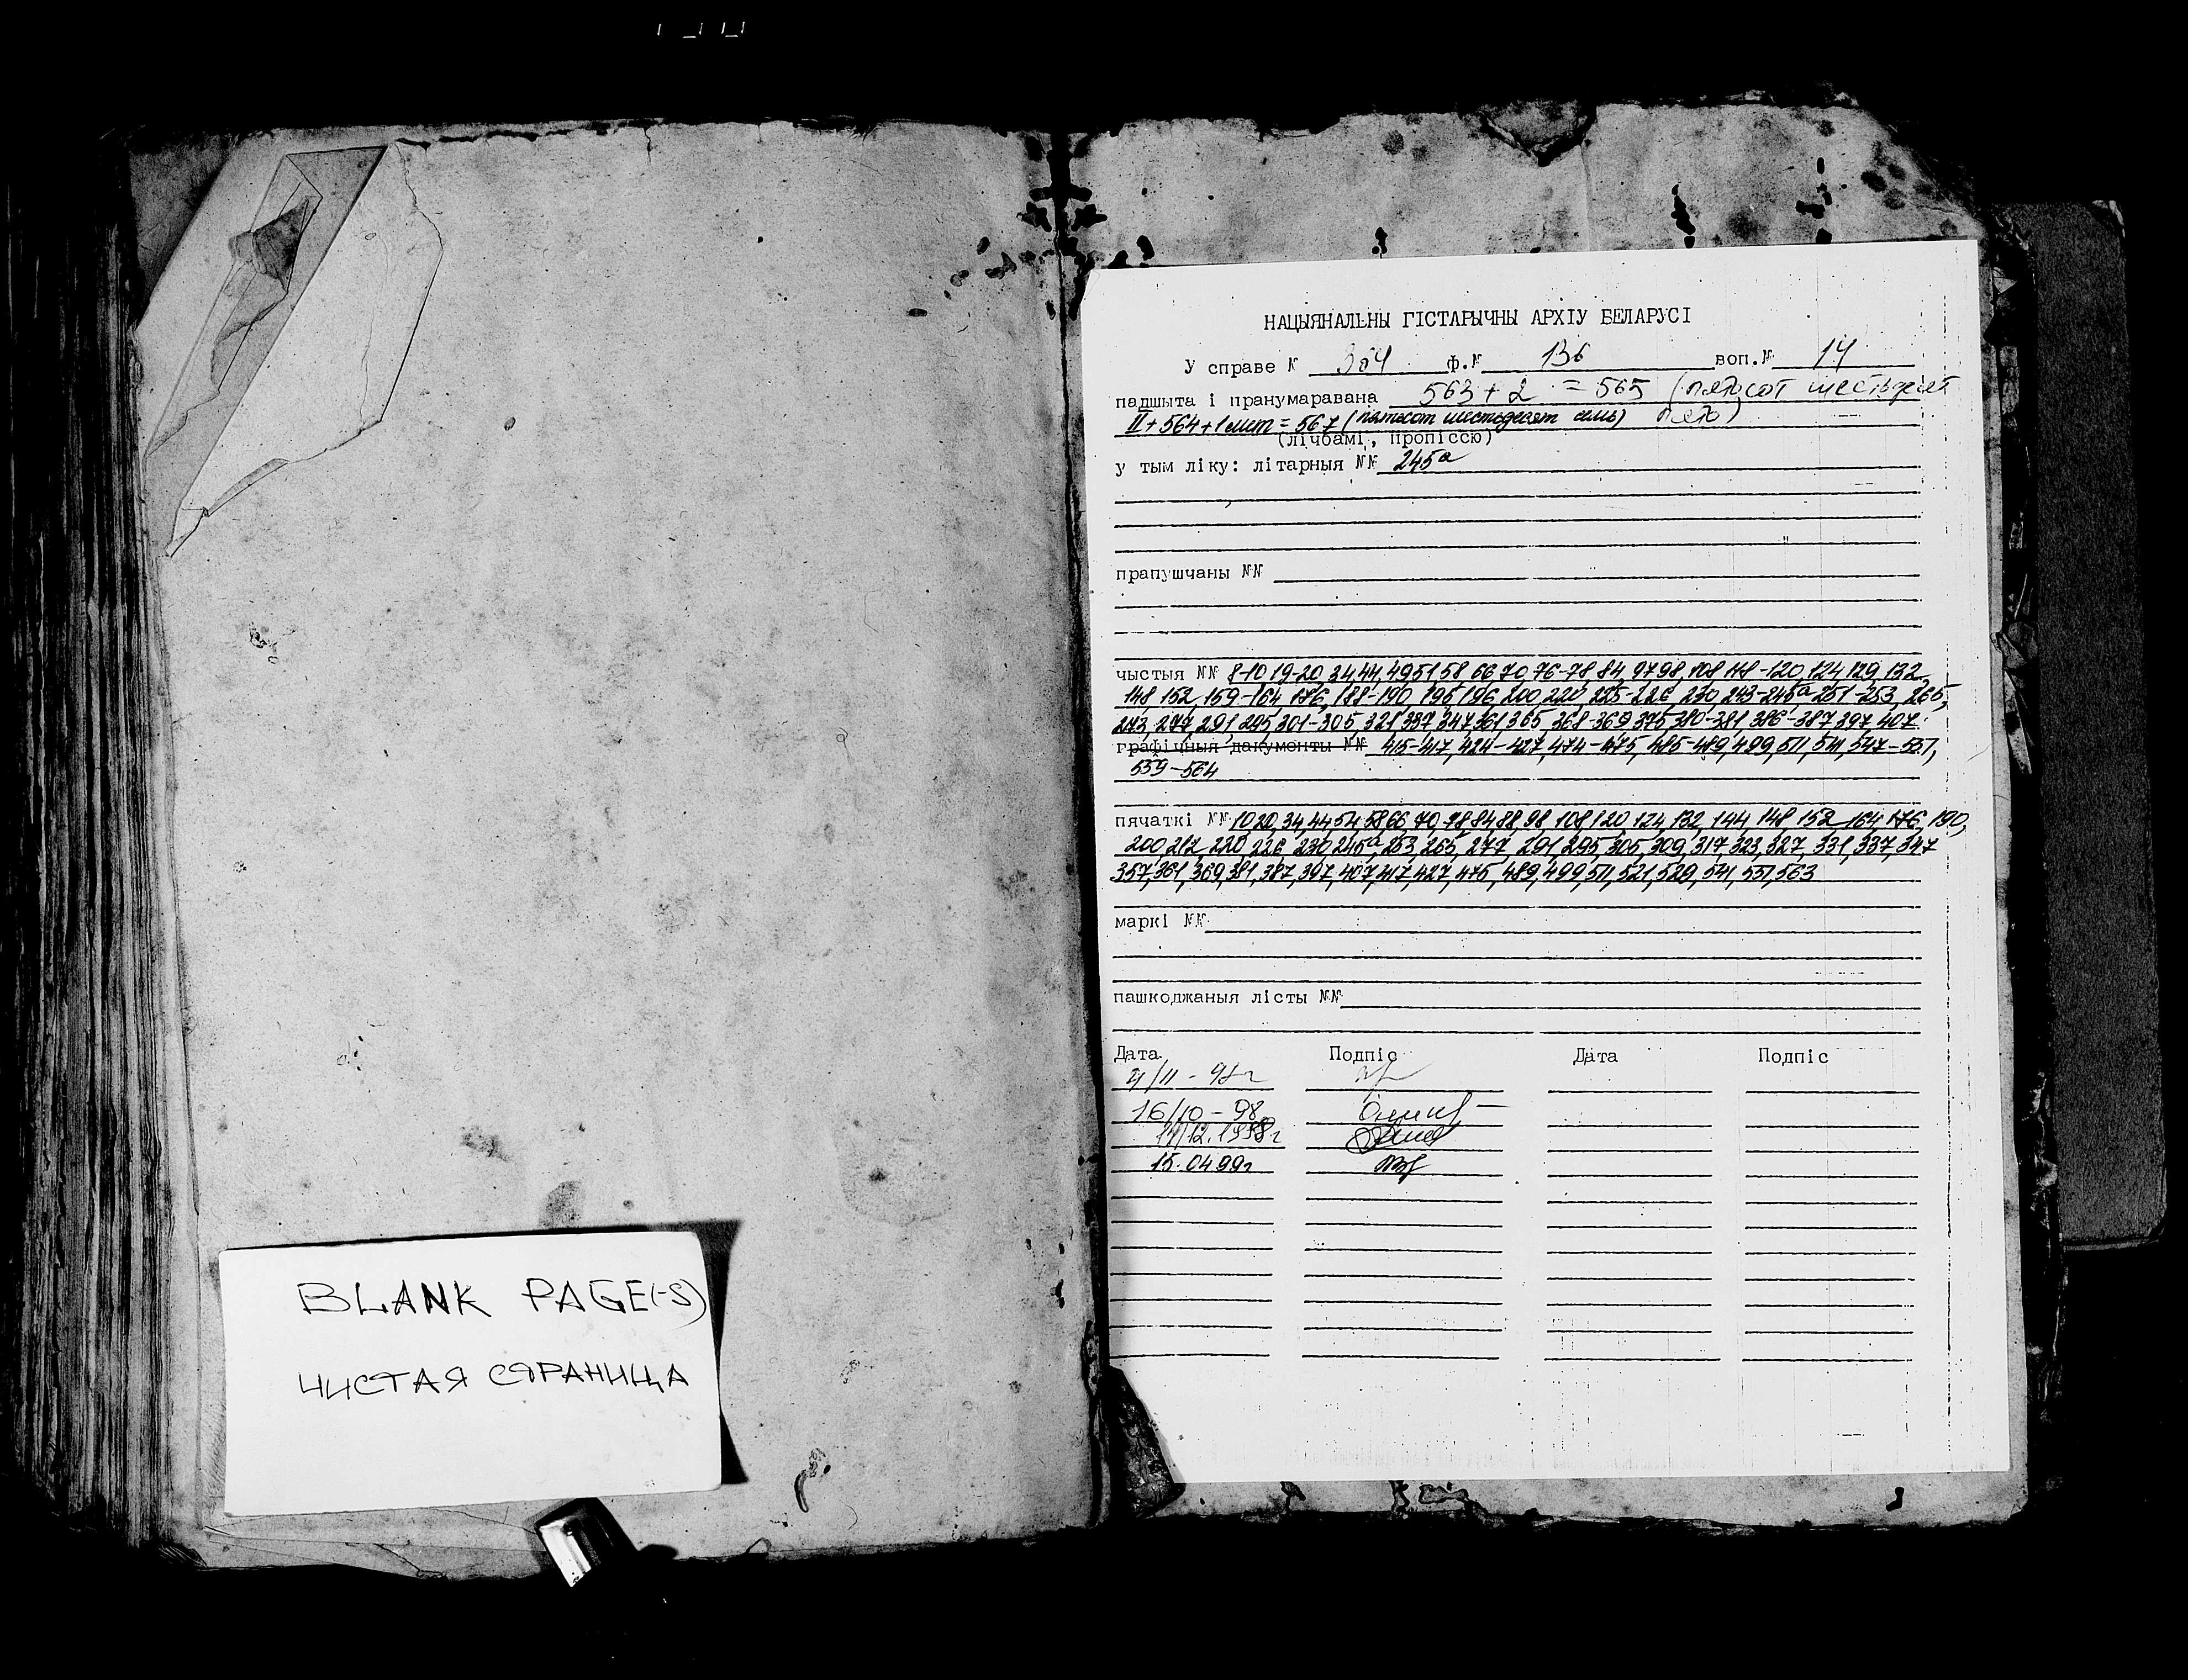 BLANK PAGE(-S)
ЧИСТАЯ СТРАНИЦА
НАЦЫЯНАЛЬНЫ ГІСТАРЫЧНЫ АРХІУ БЕЛАРУСІ
У справе № 364 ф.№ 136 воп.№ 14
падшыта і пранумаравана 563 + 2 = 565 (пятьсот шестьдесят
II + 564 + 1 лист = 567 (пятьсот шестьдесят семь) пять)
(лічбамі, пропіссю)
у тым ліку: літарныя №№ 245а
прапушчаны №№
чыстыя №№ 8-10, 19-20, 34, 44, 49, 51, 58, 66, 70, 76-78, 84, 97, 98, 108, 118-120, 124, 129, 132,
148, 152, 159-164, 176, 188-190, 195, 196, 200, 220, 225-226, 230, 243-245а, 251-253, 265,
273, 277, 291, 295, 301-305, 321, 337, 347, 361, 365, 368-369, 375, 380-381, 386-387, 397, 407.
графічныя дакументы №№ 415-417, 424-427, 474-475, 485-489, 499, 511, 541, 547-551,
559-564
пячаткі №№ 10, 20, 34, 44, 54, 58, 66, 70, 78, 84, 88, 98, 108, 120, 124, 132, 144, 148, 152, 164, 176, 190,
200, 212, 220, 226, 230, 245а, 253, 265, 277, 291, 295, 305, 309, 317, 323, 327, 331, 337, 347
357, 361, 369, 381, 387, 397, 407, 417, 427, 475, 489, 499, 511, 521, 529, 541, 551, 563
маркі №№
пашкоджаныя лісты №№
Дата Подпіс Дата Подпіс
16/10 - 98
14/12. 1998г
15.04 99г